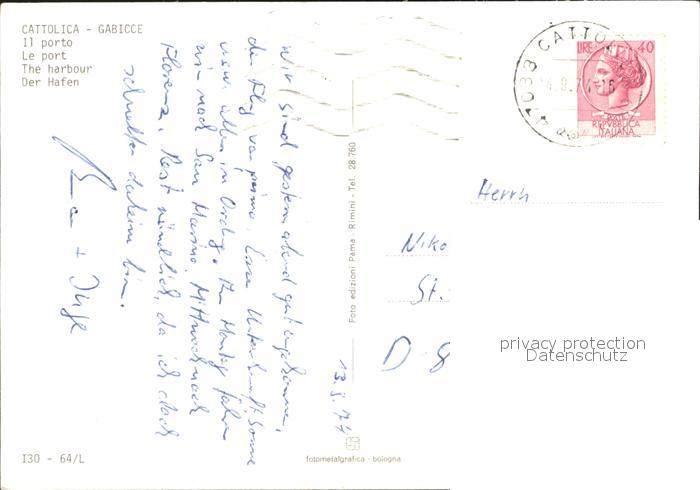 CATTOLICA - GABICCE
Il porto
Le port
The harbour
Der Hafen
Wir sind gestern abend gut angekommen,
der Flug war prima.
alles in Ordng. Am Montag fahren
wir nach San Marino, Mittwoch nach
Florenz. Rest mündlich, da ich doch
schneller daheim bin.
+ Inge
13.9.74
Foto edizioni Pama - Rimini - Tel. 28.760
fotometalgrafica - bologna
I30 - 64/L
47033 CATTO
LIRE 40
POSTE
REPVBBLICA
ITALIANA
Herrn
Niko
St.
D-8
privacy protection
Datenschutz